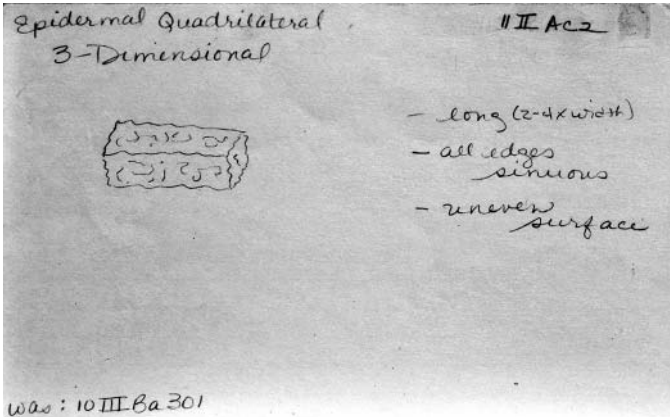 Epidermal Quadrilateral
11 II Ac2
3-Dimensional
- long (2-4x width)
- all edges
sinuous
- uneven
surface
was: 10 III Ba 301